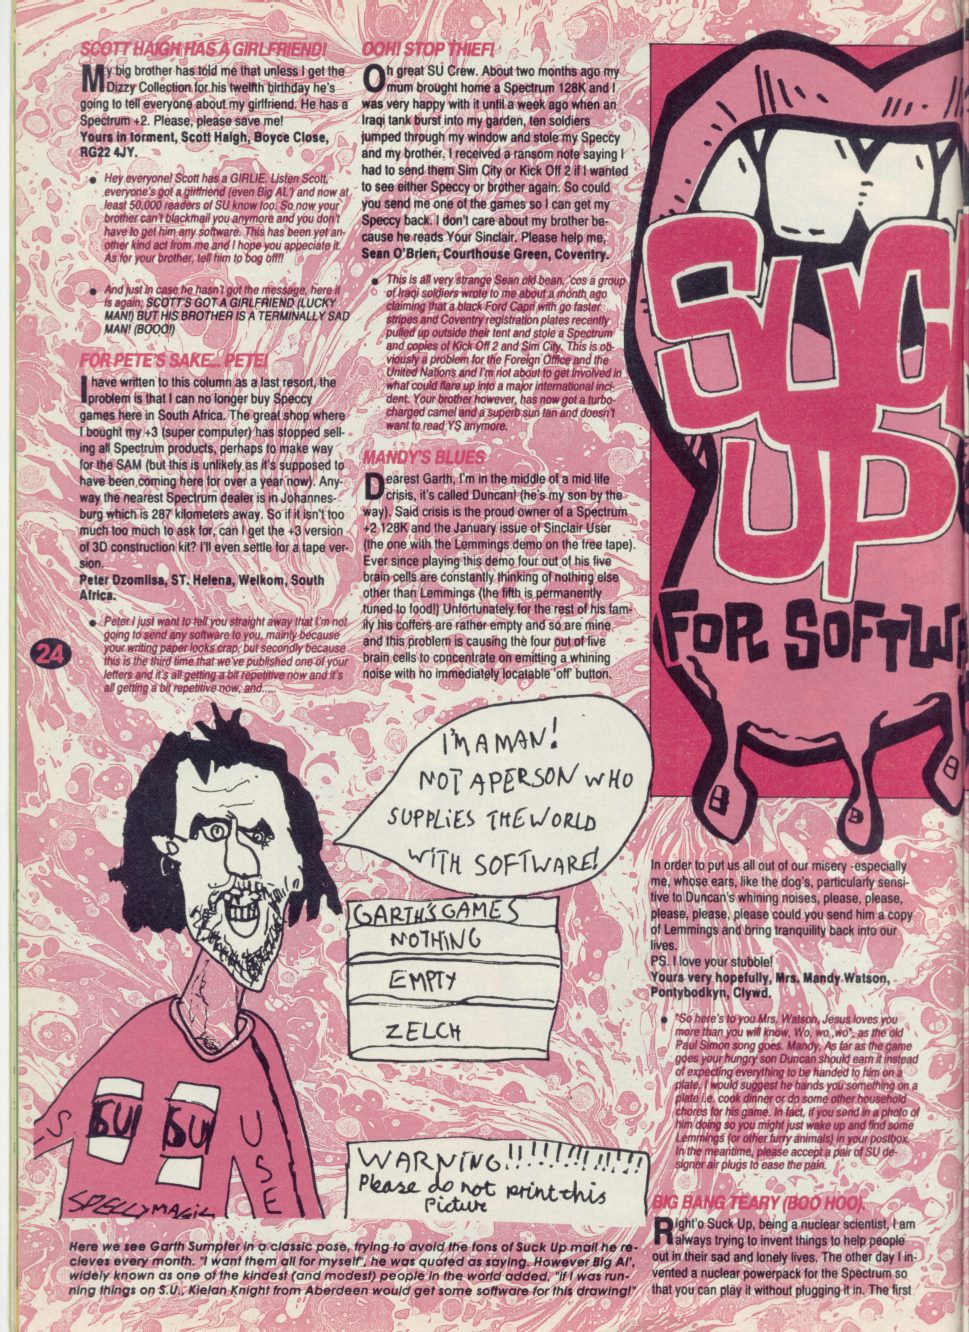 SCOTT HAIGH HAS A GIRLFRIEND!
My big brother has told me that unless I get the
Dizzy Collection for his twelfth birthday he's
going to tell everyone about my girlfriend. He has a
Spectrum +2. Please, please save me!
Yours in torment, Scott Haigh, Boyce Close,
RG22 4JY.
• Hey everyone! Scott has a GIRLIE. Listen Scott,
everyone's got a girlfriend (even Big AL') and now at
least 50,000 readers of SU know too. So now your
brother can't blackmail you anymore and you don't
have to get him any software. This has been yet an-
other kind act from me and I hope you appeciate it.
As for your brother, tell him to bog off!!!
• And just in case he hasn't got the message, here it
is again; SCOTT'S GOT A GIRLFRIEND (LUCKY
MAN!) BUT HIS BROTHER IS A TERMINALLY SAD
MAN! (BOOO!)
FOR PETE'S SAKE... PETE!
I have written to this column as a last resort, the
problem is that I can no longer buy Speccy
games here in South Africa. The great shop where
I bought my +3 (super computer) has stopped sell-
ing all Spectrum products, perhaps to make way
for the SAM (but this is unlikely as it's supposed to
have been coming here for over a year now). Any-
way the nearest Spectrum dealer is in Johannes-
burg which is 287 kilometers away. So if it isn't too
much too much to ask for, can I get the +3 version
of 3D construction kit? I'll even settle for a tape ver-
sion.
Peter Dzomlisa, ST. Helena, Welkom, South
Africa.
• Peter I just want to tell you straight away that I'm not
going to send any software to you, mainly because
your writing paper looks crap, but secondly because
this is the third time that we've published one of your
letters and it's all getting a bit repetitive now and it's
all getting a bit repetitive now, and.....
24
OOH! STOP THIEF!
Oh great SU Crew. About two months ago my
mum brought home a Spectrum 128K and I
was very happy with it until a week ago when an
Iraqi tank burst into my garden, ten soldiers
jumped through my window and stole my Speccy
and my brother. I received a ransom note saying I
had to send them Sim City or Kick Off 2 if I wanted
to see either Speccy or brother again. So could
you send me one of the games so I can get my
Speccy back. I don't care about my brother be-
cause he reads Your Sinclair. Please help me,
Sean O'Brien, Courthouse Green, Coventry.
• This is all very strange Sean old bean, 'cos a group
of Iraqi soldiers wrote to me about a month ago
claiming that a black Ford Capri with go faster
stripes and Coventry registration plates recently
pulled up outside their tent and stole a Spectrum
and copies of Kick Off 2 and Sim City. This is ob-
viously a problem for the Foreign Office and the
United Nations and I'm not about to get involved in
what could flare up into a major international inci-
dent. Your brother however, has now got a turbo-
charged camel and a superb sun tan and doesn't
want to read YS anymore.
MANDY'S BLUES
Dearest Garth, I'm in the middle of a mid life
crisis, it's called Duncan! (he's my son by the
way). Said crisis is the proud owner of a Spectrum
+2 128K and the January issue of Sinclair User
(the one with the Lemmings demo on the free tape).
Ever since playing this demo four out of his five
brain cells are constantly thinking of nothing else
other than Lemmings (the fifth is permanently
tuned to food!) Unfortunately for the rest of his fam-
ily his coffers are rather empty and so are mine
and this problem is causing the four out of five
brain cells to concentrate on emitting a whining
noise with no immediately locatable 'off' button.
SUC
UP
FOR SOFTW
In order to put us all out of our misery -especially
me, whose ears, like the dog's, particularly sensi-
tive to Duncan's whining noises, please, please,
please, please, please could you send him a copy
of Lemmings and bring tranquility back into our
lives.
PS. I love your stubble!
Yours very hopefully, Mrs. Mandy Watson,
Pontybodkyn, Clywd.
• "So here's to you Mrs. Watson, Jesus loves you
more than you will know, Wo, wo, wo", as the old
Paul Simon song goes. Mandy, As far as the game
goes your hungry son Duncan should earn it instead
of expecting everything to be handed to him on a
plate. I would suggest he hands you something on a
plate i.e. cook dinner or do some other household
chores for his game. In fact, if you send in a photo of
him doing so you might just wake up and find some
Lemmings (or other furry animals) in your postbox.
In the meantime, please accept a pair of SU de-
signer air plugs to ease the pain.
BIG BANG TEARY (BOO HOO).
Right'o Suck Up, being a nuclear scientist, I am
always trying to invent things to help people
out in their sad and lonely lives. The other day I in-
vented a nuclear powerpack for the Spectrum so
that you can play it without plugging it in. The first
I'M A MAN!
NOT A PERSON WHO
SUPPLIES THE WORLD
WITH SOFTWARE!
GARTH'S GAMES
NOTHING
EMPTY
ZELCH
SU SU
USE
WARNING!!!!!!!!!!!!
Please do not print this
Picture
Here we see Garth Sumpter in a classic pose, trying to avoid the tons of Suck Up mail he re-
cieves every month. "I want them all for myself", he was quoted as saying. However Big Al',
widely known as one of the kindest (and modest) people in the world added, "If I was run-
ning things on S.U., Kielan Knight from Aberdeen would get some software for this drawing!"